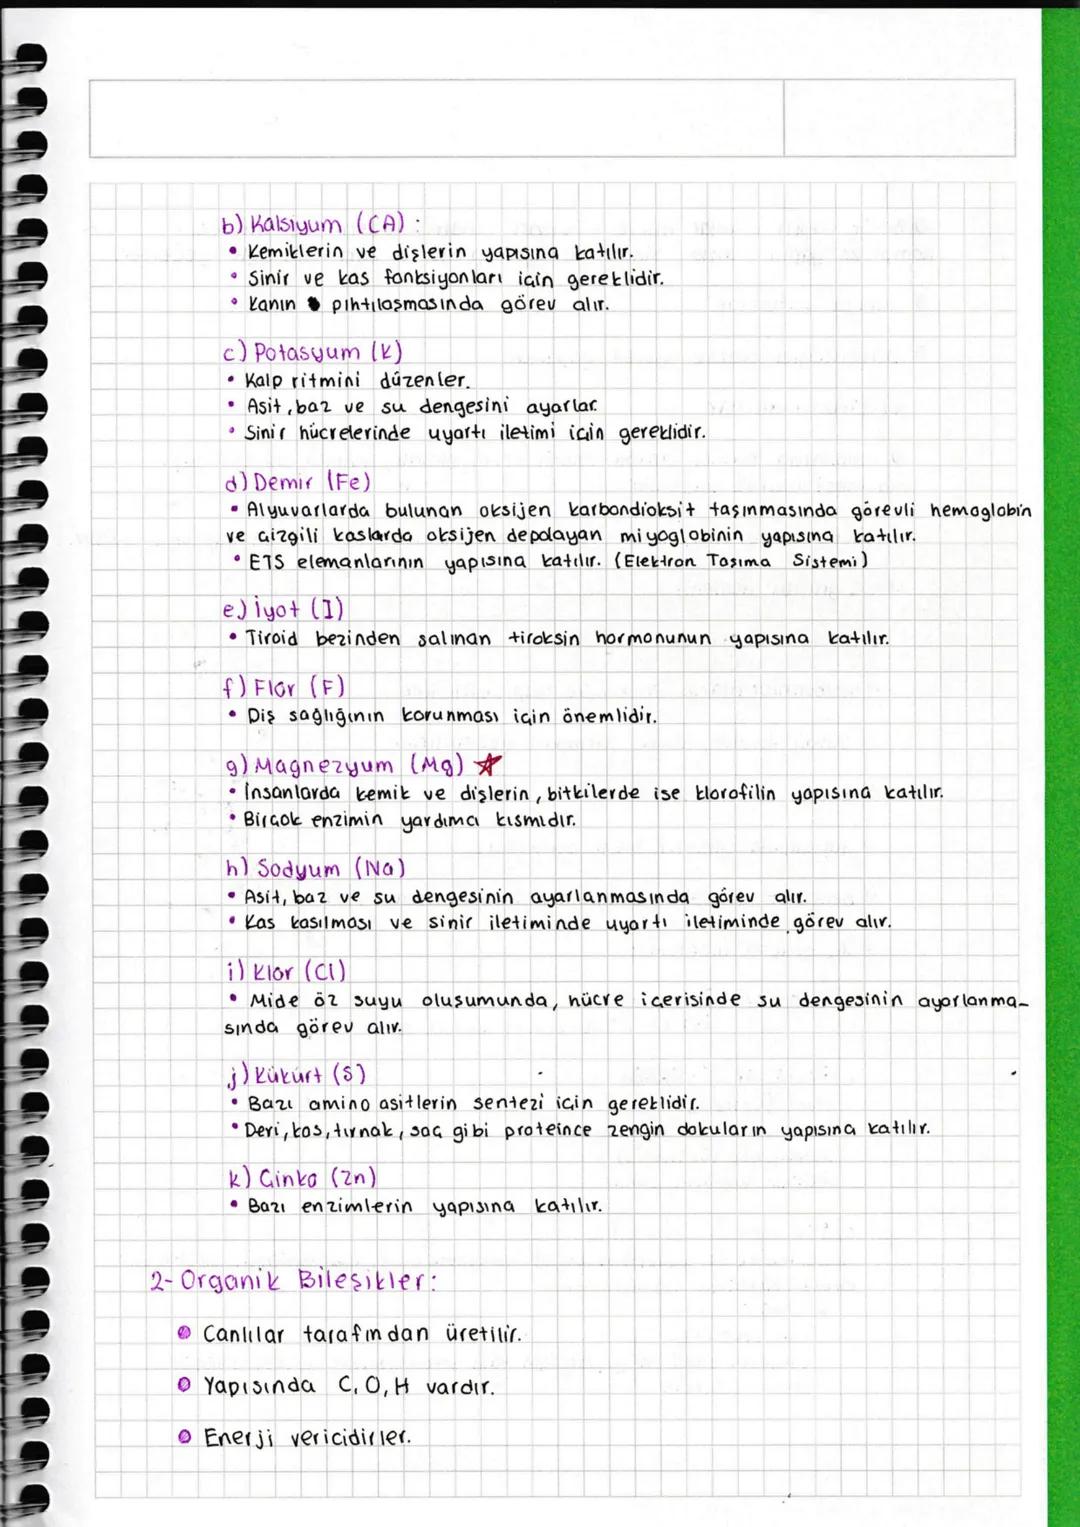 b) Kalsiyum (CA) :
• Kemiklerin ve dişlerin yapısına katılır.
• Sinir ve kas fonksiyonları için gereklidir.
• Kanın pıhtılaşmasında görev alır.
c) Potasyum (K)
• Kalp ritmini düzenler.
• Asit, baz ve su dengesini ayarlar.
• Sinir hücrelerinde uyartı iletimi için gereklidir.
d) Demir (Fe)
• Alyuvarlarda bulunan oksijen karbondioksit taşınmasında görevli hemoglobin
ve çizgili kaslarda oksijen depolayan miyoglobinin yapısına katılır.
• ETS elemanlarının yapısına katılır. (Elektron Taşıma Sistemi)
e) İyot (I)
• Tiroid bezinden salınan tiroksin hormonunun yapısına katılır.
f) Flor (F)
• Diş sağlığının korunması için önemlidir.
g) Magnezyum (Mg) ☆
• İnsanlarda kemik ve dişlerin, bitkilerde ise klorofilin yapısına katılır.
• Birçok enzimin yardımcı kısmıdır.
h) Sodyum (Na)
• Asit, baz ve su dengesinin ayarlanmasında görev alır.
• Kas kasılması ve sinir iletiminde uyartı iletiminde görev alır.
i) Klor (Cl)
• Mide öz suyu oluşumunda, hücre içerisinde su dengesinin ayarlanma-
sında görev alır.
j) Kükürt (S)
• Bazı amino asitlerin sentezi için gereklidir.
• Deri, kas, tırnak, saç gibi proteince zengin dokuların yapısına katılır.
k) Çinko (Zn)
• Bazı enzimlerin yapısına katılır.
2- Organik Bileşikler:
• Canlılar tarafından üretilir.
• Yapısında C, O, H vardır.
• Enerji vericidirler.